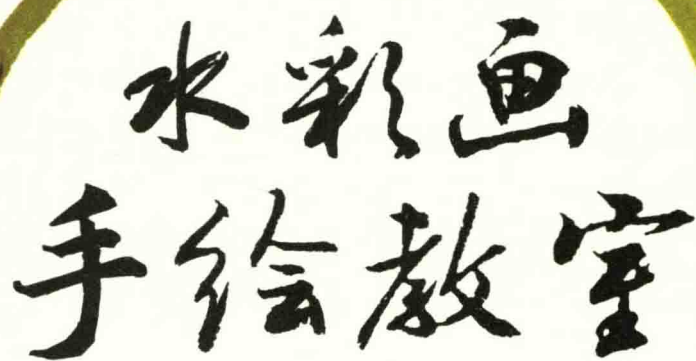 水彩画
手绘教室